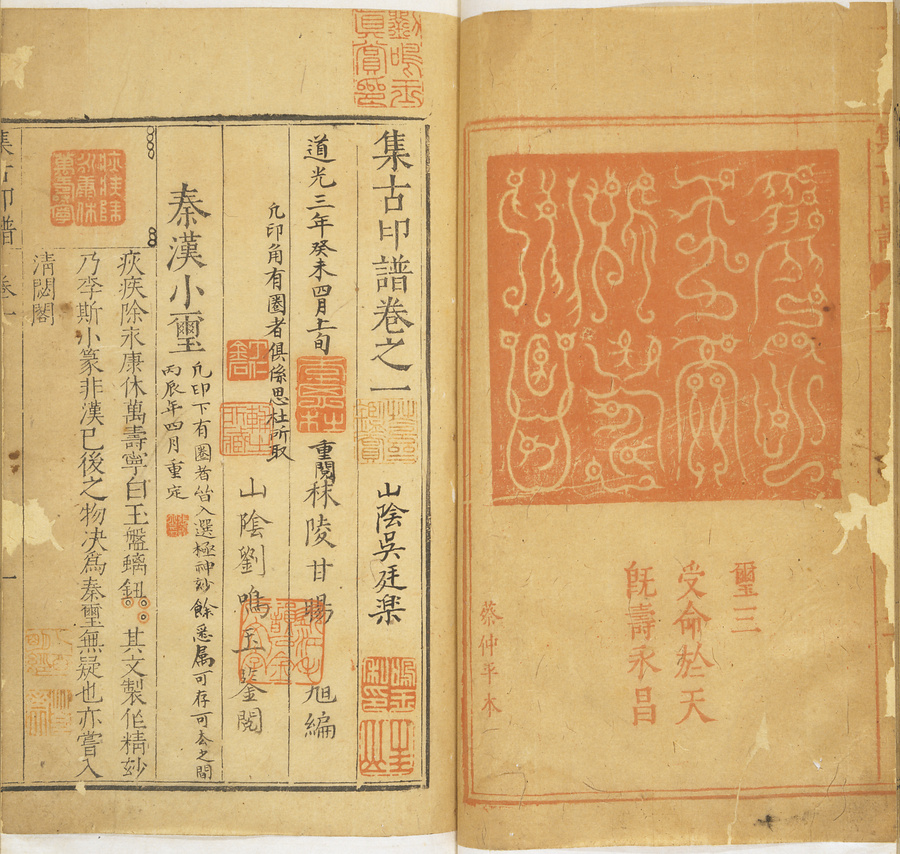 璽三
受命於天
既壽永昌
蔡仲平本
劉鳴玉真賞印
集古印譜卷之一 山陰吳廷
道光三年癸未四月上旬 重閱
秣陵甘暘旭編
凡印角有圈者俱係思杜所取
山陰劉鳴玉鍳閱
秦漢小璽
凡印下有圈者皆入選極神妙餘悉属可存可去之間
丙辰年四月重定
疢疾除永康休萬壽寧
疢疾除永康休萬壽寧白玉盤螭鈕 其文製作精妙
乃李斯小篆非漢已後之物决爲秦璽無疑也亦嘗入
清閟閣
集古印譜 卷一 一